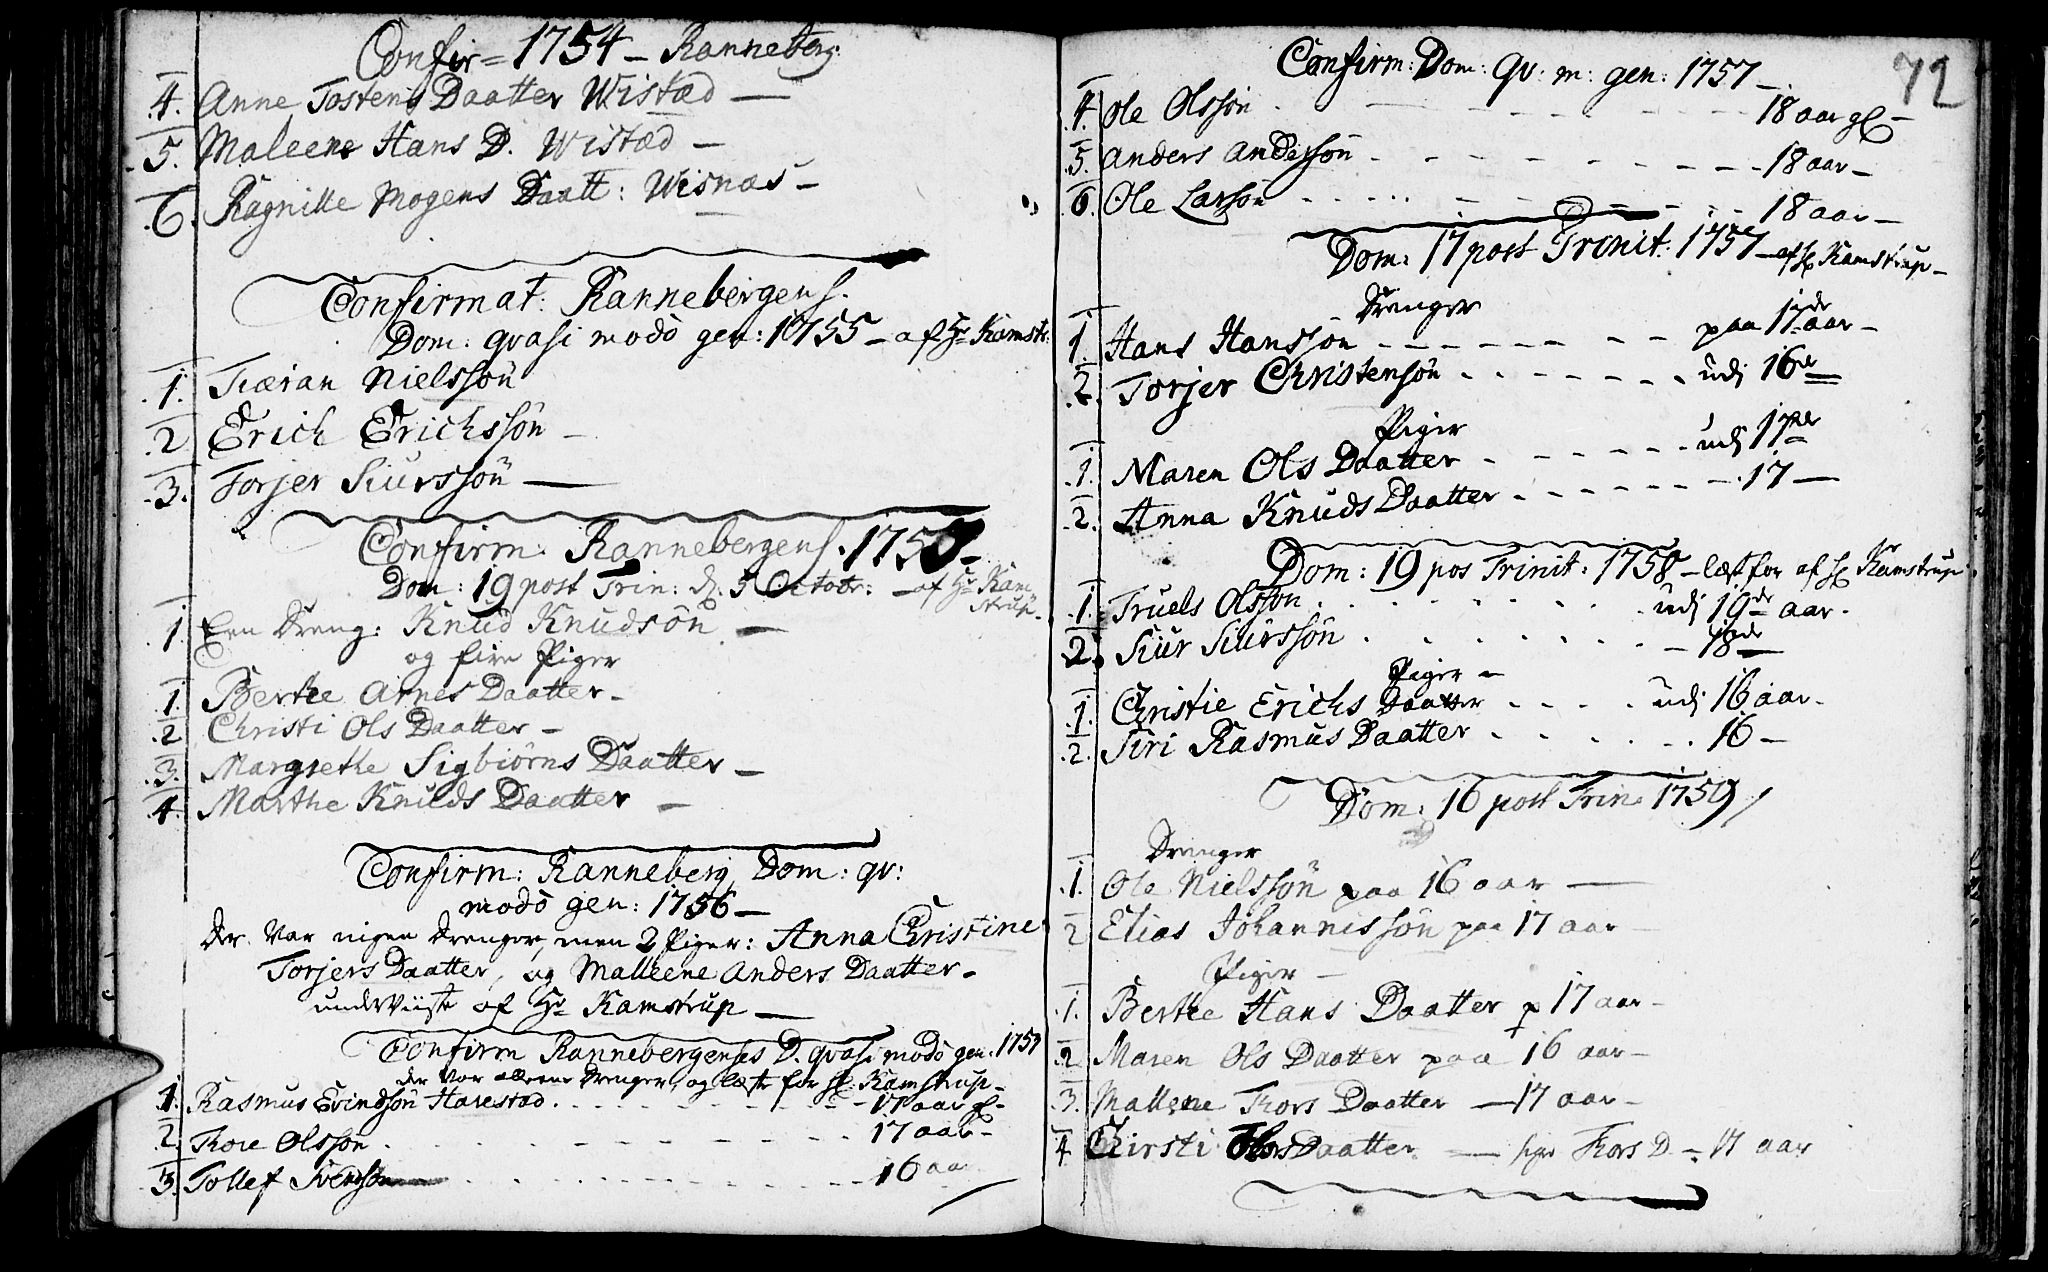 Confir= 1754 - Ranneberg.
4. Anne Tostens Daatter Wistæd —
5. Maleene Hans D. Wistæd —
6. Ragnille Mogens Daatt: Wisnæs -
Confirmat: Rannebergens.
Dom: qvasi modò gen: 1755 - af Hr Kamstr:
1. Tiæran Nielssøn
2 Erich Erichssøn -
3. Torjer Siurssøn —
Confirm: Rannebergens. 1755 -
Dom: 19 post Trin: d. 5 Octobr: - af Hr Kam
strup -
1. Een Dreng: Knud Knudsøn —
og fire Piger
1. Berthe Arnes Daatter -
2 Christi Ols Daatter -
3. Margrethe Sigbiørns Daatter -
4. Marthe Knuds Daatter -
Confirm: Ranneberg Dom: qv:
modò gen: 1756 -
Der var ingen Drenger, men 2 Piger: Anna Christine
Torjers Daatter, og Malleene Anders Daatter -
underviiste af Hr Kamstrup —
Confirm Rannebergenses D. qvasi modò gen: 1757
der var alleene Drenger, og læste for Hr Kamstrup -
1. Rasmus Erindsøn Harestad - 17 aar gl -
2. Thore Olssøn - 17 aar -
3. Tollef Svendsøn - 16 aar
72
Confirm: Dom: qv: m: gen: 1757 -
4. Ole Olssøn - 18 aar gl -
5. Anders Anderssøn - 18 aar -
6. Ole Larssøn - 18 aar -
Dom: 17 post Trinit: 1757 - af Hr Kamstrup -
Drenger
1. Hans Hanssøn - paa 17de aar -
2. Torjer Christensøn - udj 16de
Piger
1. Maren Ols Daatter - udj 17de
2. Anna Knuds Daatter - 17 -
Dom: 19 pos Trinit: 1758 - læst for af Hr Kamstrup
1. Truels Olssøn - udj 19de aar.
2. Siur Siurssøn - 18de
Piger -
1. Christie Erichs Daatter - udj 16 aar -
2. Siri Rasmus Daatter - 16 -
Dom: 16 post Trin: 1759
Drenger
1. Ole Nielssøn paa 16 aar —
2 Elias Johannissøn paa 17 aar —
Piger -
1. Berthe Hans Daatter p 17 aar -
2 Maren Ols Daatter paa 16 aar -
3. Mallene Thors Daatter - 17 aar -
4 Chirsti Thors Daatter - Thors D - 17 aar